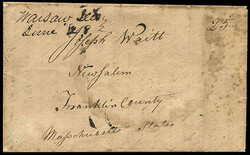 Warsaw
June
25
Joseph Waitt
New Salem
Franklin County
Massachusetts State